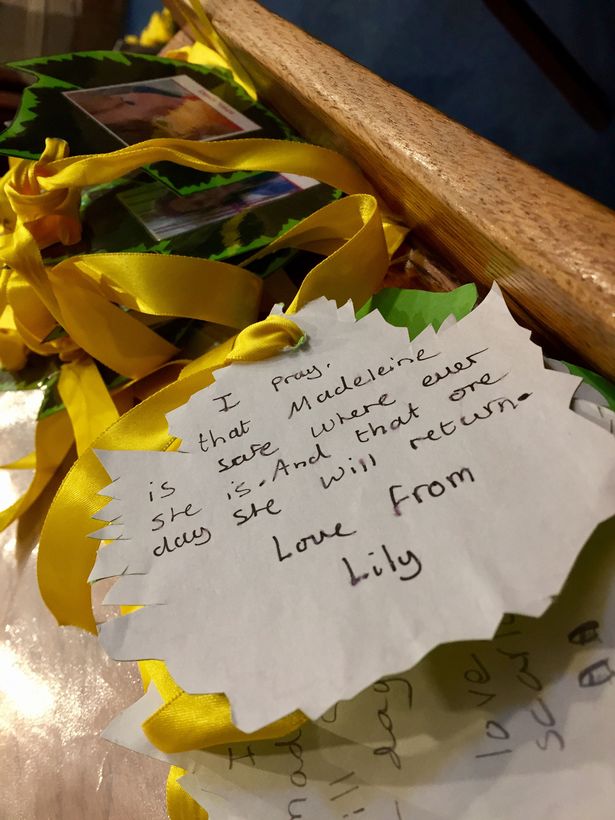 I pray.
that Madeleine
is safe where ever
she is. And that one
day she will return.
Love From
Lily
I
mad
ill
day
love